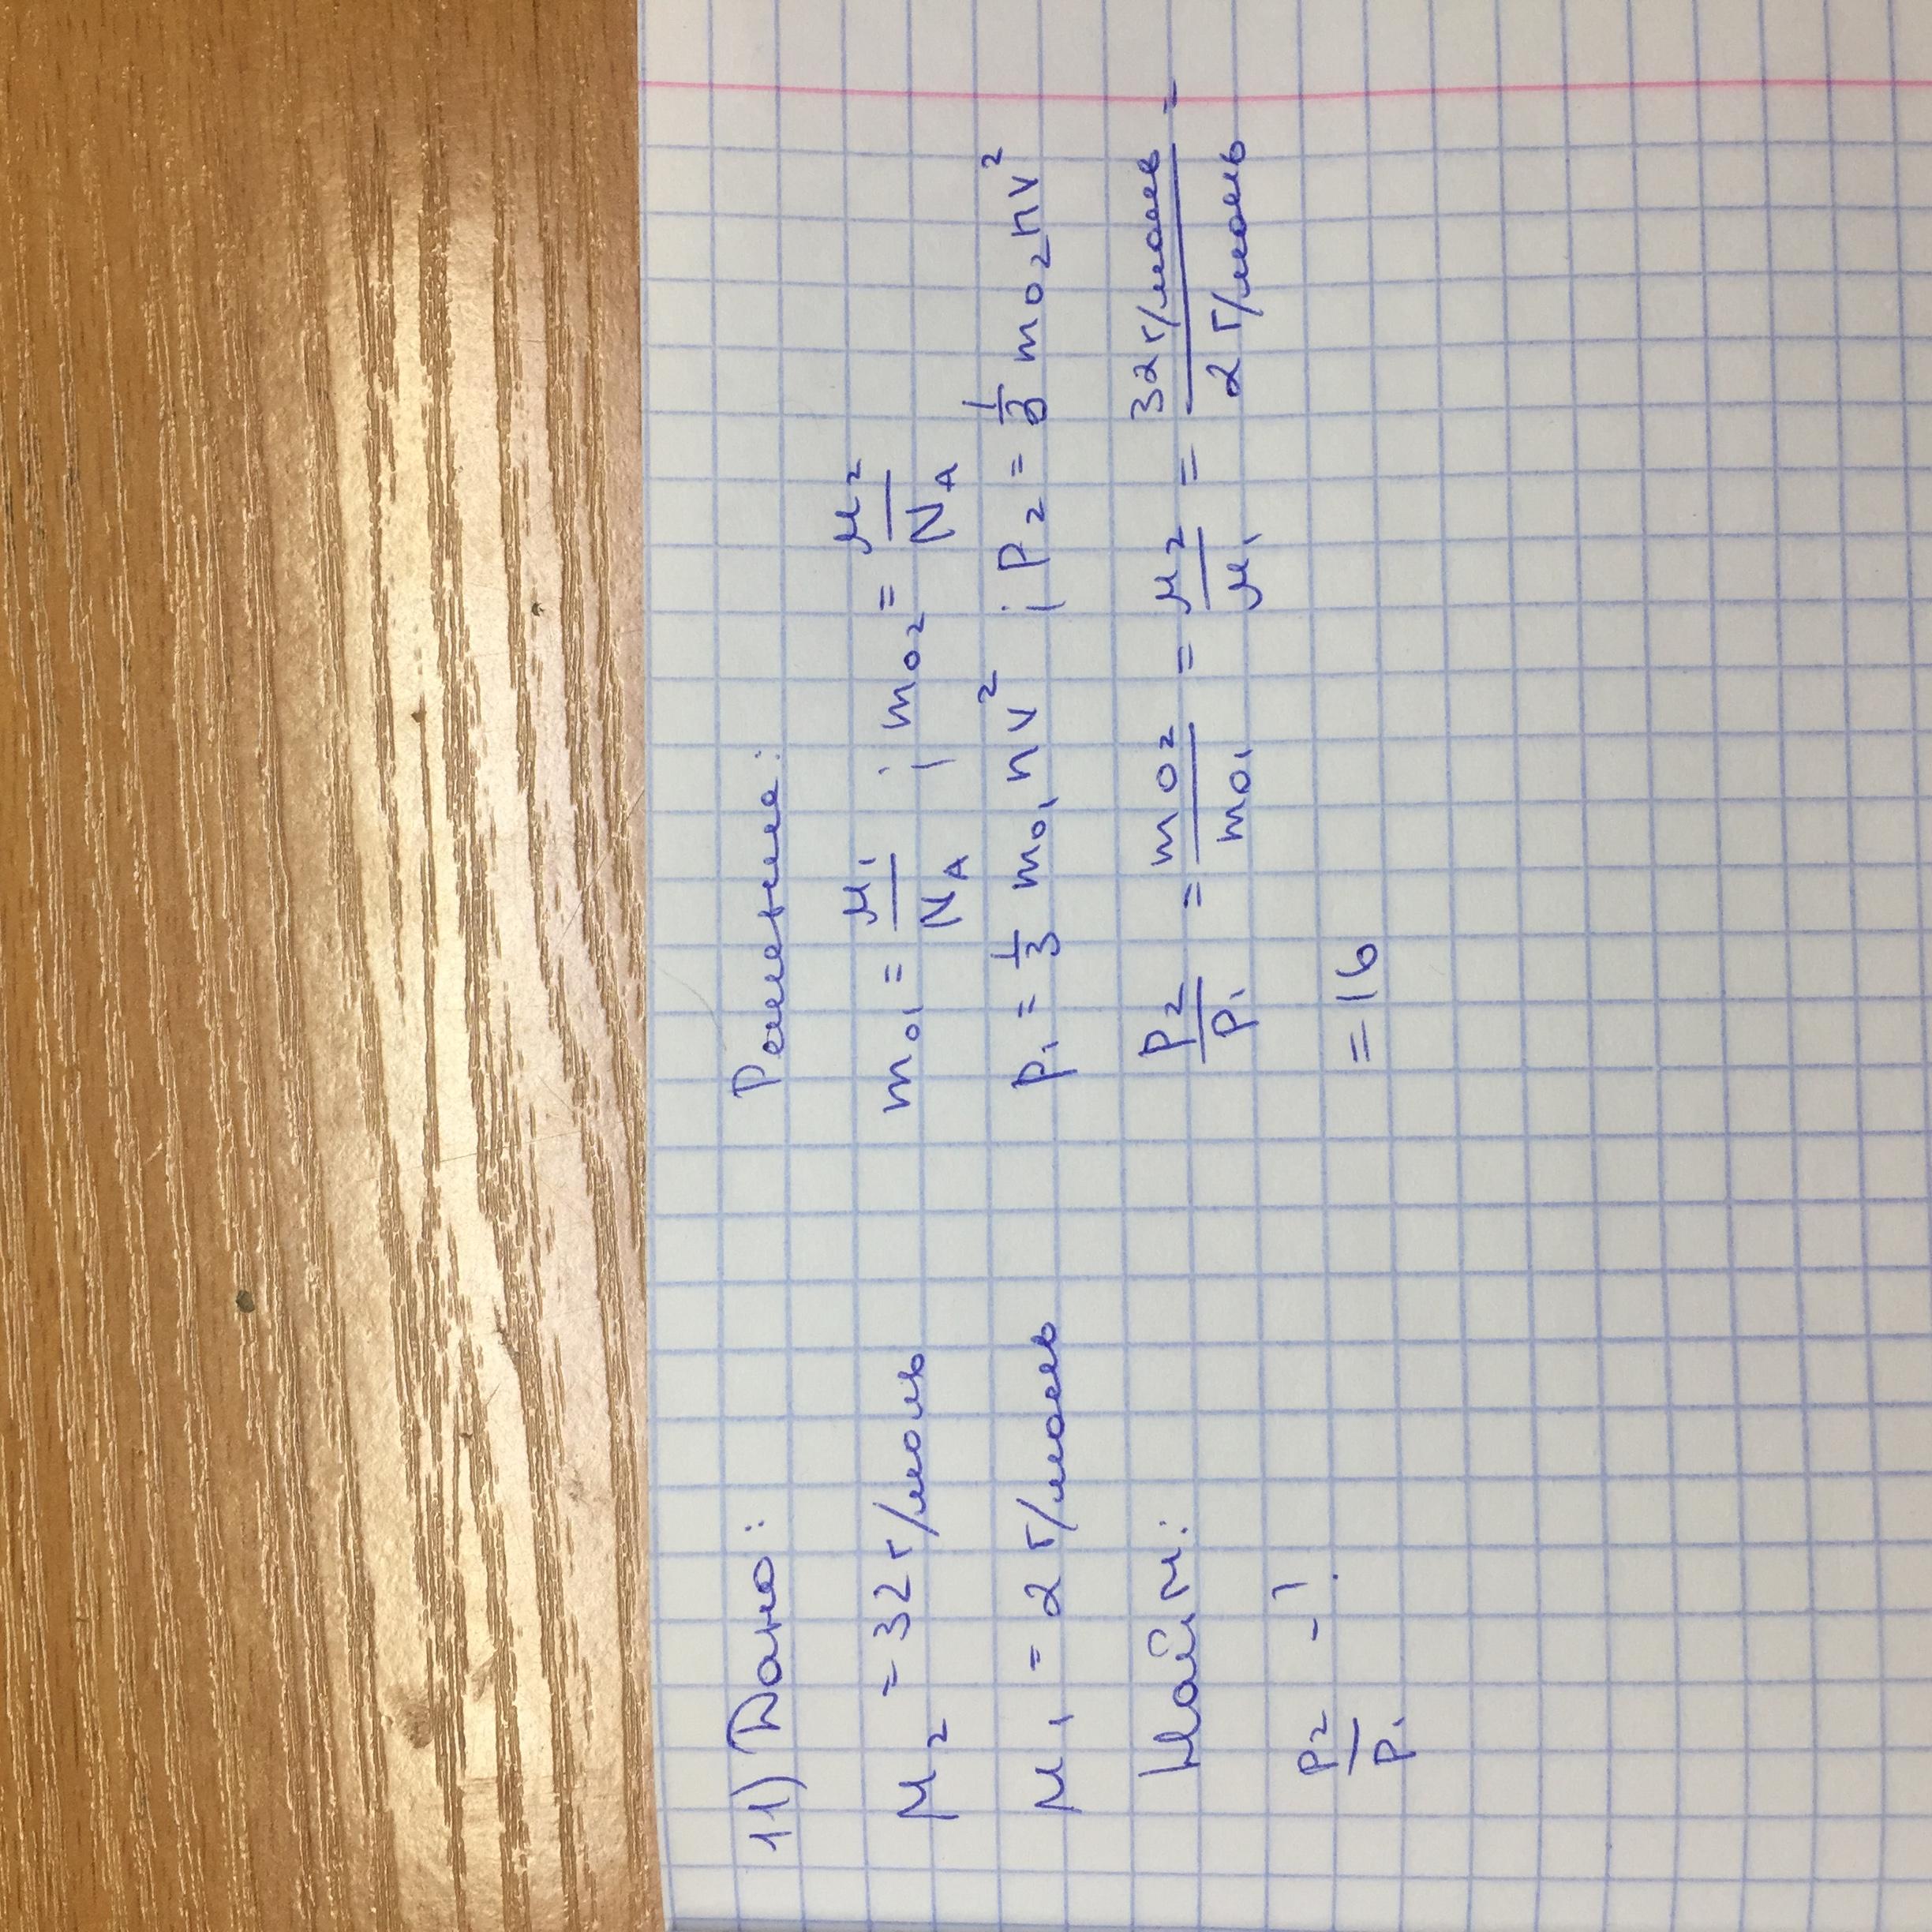 11) Дано:
μ₂ = 32 г/моль
μ₁ = 2 г/моль
Найти:
P₂/P₁ - ?
Решение:
m₀₁ = μ₁/N_A ; m₀₂ = μ₂/N_A
P₁ = 1/3 m₀₁nv² ; P₂ = 1/3 m₀₂nv²
P₂/P₁ = m₀₂/m₀₁ = μ₂/μ₁ = 32 г/моль / 2 г/моль =
= 16